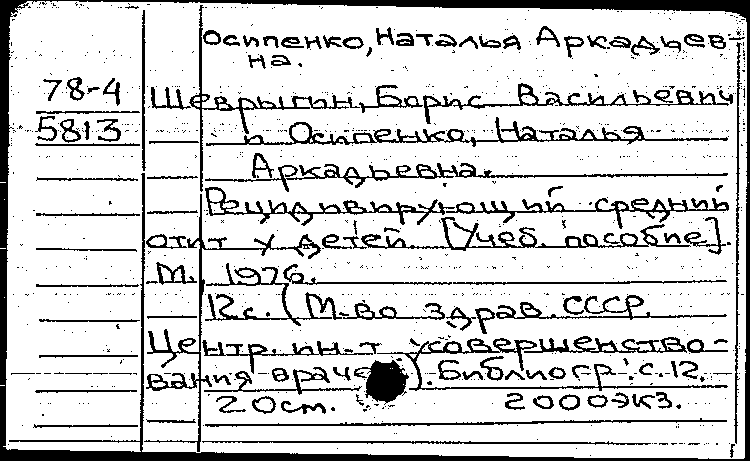 Осипенко, Наталья Аркадьев-
на.
78-4
5813
Шеврыгин, Борис Васильевич
и Осипенко, Наталья
Аркадьевна.
Рецидивирующий средний
отит у детей. [Учеб. пособие].
М., 1976.
12 с. (М-во здрав. СССР.
Центр. ин-т усовершенство-
вания враче ). Библиогр.: с. 12.
20 ст. 2000 экз.